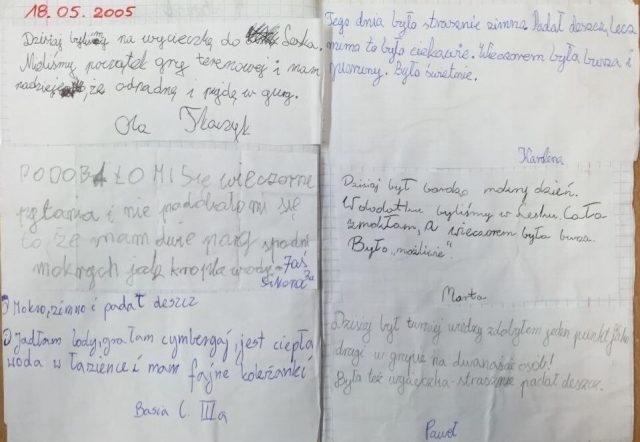 18.05.2005
Dzisiaj byliśmy na wycieczkę do Leska.
Mieliśmy początek gry terenowej i mam
nadzieję, że odpadnę i pójdę w góry.
Ola Tkaczyk
PODOBAŁO MI Się wieczorne
pytania i nie podobało mi się
to że mam dwie pary spodni
mokrych jak kropla wody-Jaś
Sikora 3a
1) Mokro, zimno i padał deszcz
2) Jadłam lody, grałam cymbergaj, jest ciepła
woda w łazience i mam fajne koleżanki
Basia C. IIIa
Tego dnia było strasznie zimno. Padał deszcz, Lecz
mimo to było ciekawie. Wieczorem była burza i
pioruny. Było świetnie.
Karolina
Dzisiaj był bardzo mokry dzień.
W dodatku byliśmy w Lesku. Cała
zmokłam, a wieczorem była burza.
Było „możliwie".
Marta
Dzisiaj był turniej wiedzy zdobyłem jeden punkt jako
drugi w grupie na dwanaście osób!
Była też wycieczka-strasznie padał deszcz.
Paweł